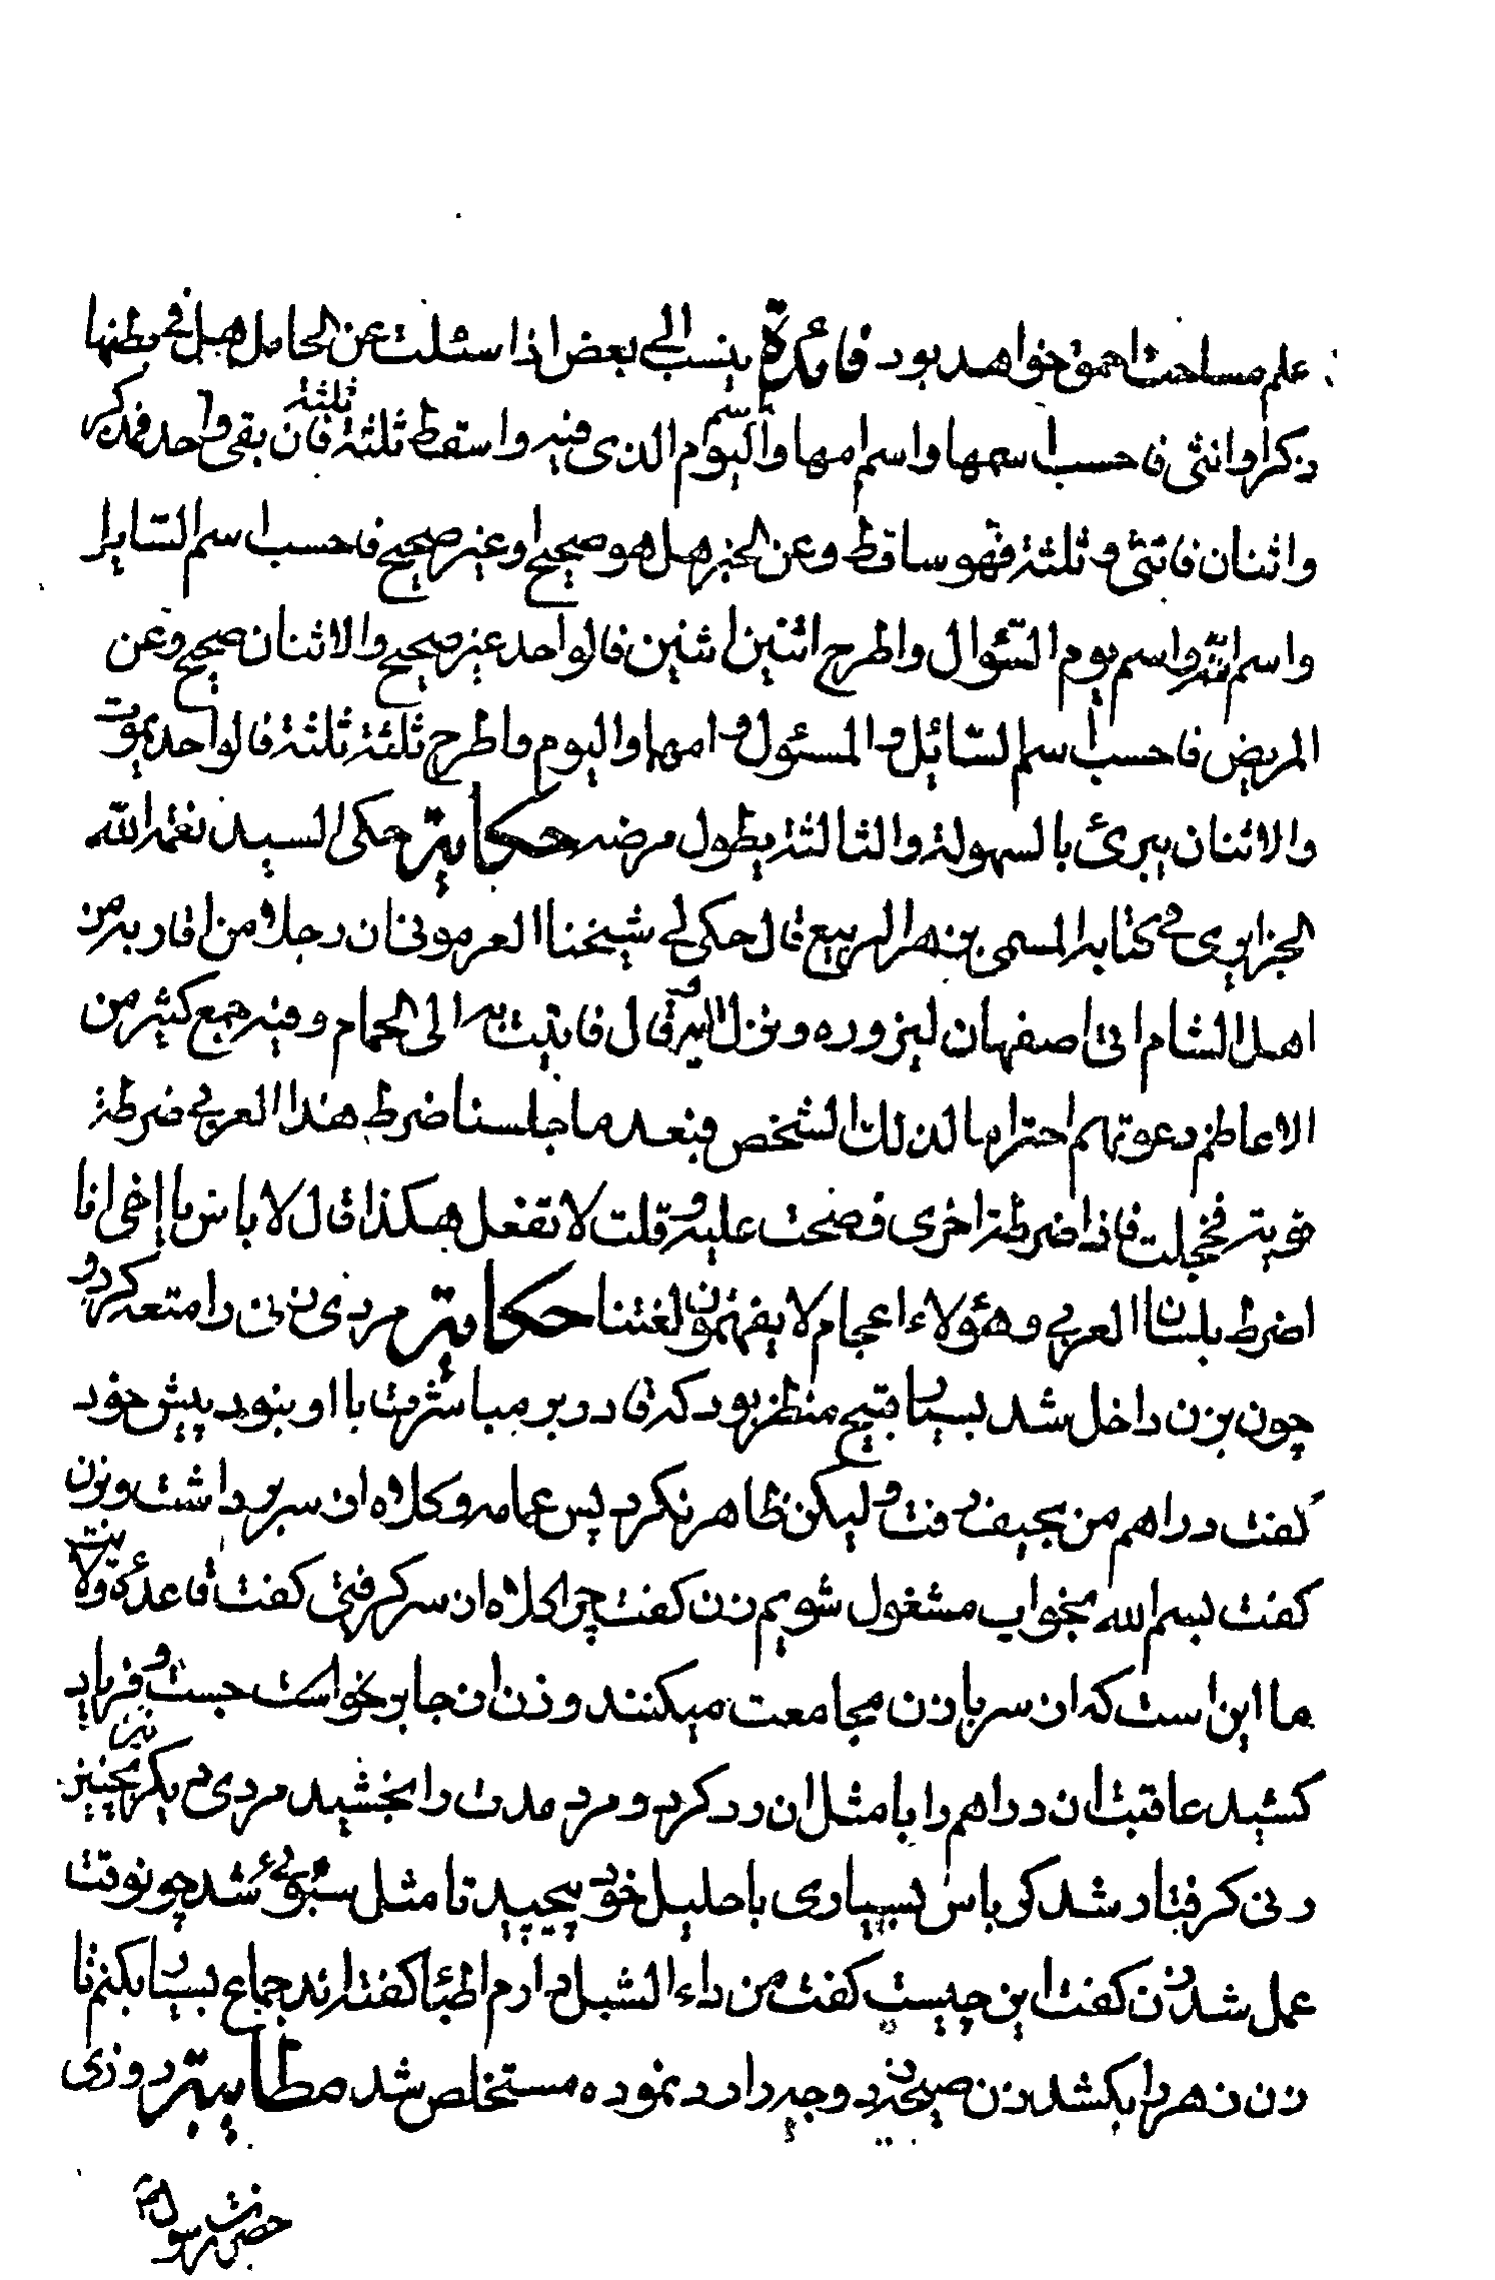 علم مساحت احمق خواهد بود فائدة ينسب الى بعض اذا سئلت عن الحامل هل فى بطنها
ذكرا وانثى فاحسب اسمها واسم امها واسم اليوم الذى فيه واسقط ثلثة ثلثة فان بقى واحد فذكر
واثنان فانثى و ثلثة فهو ساقط وعن الخبر هل هو صحيح او غير صحيح فاحسب اسم السايل
واسم امه واسم يوم السؤال واطرح اثنين اثنين فالواحد غير صحيح والاثنان صحيح وعن
المريض فاحسب اسم السائل و المسئول و امهما واليوم واطرح ثلثة ثلثة فالواحد يموت
والاثنان يبرئ بالسهولة والثالثة يطول مرضه حكاية حكى السيد نعمة الله
الجزايرى فى كتابه المسمى بزهر الربيع قال حكى لى شيخنا العرموني ان رجلا من اقاربه من
اهل الشام اتى اصفهان ليزوره ونزل اليه و قال فاتيت به الى الحمام وفيه جمع كثير من
الاعاظم دعوتهم احتراما لذلك الشخص فبعد ما جلسنا ضرط هذا العربى ضرطة
قوية فخجلت فاذا ضرطة اخرى فصحت عليه و قلت لا تفعل هكذا قال لا باس يا اخى انا
اضرط بلسان العربى وهؤلاء اعجام لا يفهمون لغتنا حكاية مردى زنى را متعه كرد و
چون بزن داخل شد بسيار قبيح منظر بود كه قادر بر مباشرت با او نبود پيش خود
كفت دراهم من بحيف رفت و ليكن ظاهر نكرد پس عمامه وكلاه از سر برداشت و بزن
كفت بسم الله بخواب مشغول شويم زن كفت چرا كلاه از سر كرفتى كفت قاعده ولايت
ما اين است كه از سر با زن مجامعت ميكنند و زن از جا برخواست جست و فرياد
كشيد عاقبت ان دراهم را با مثل ان رد كرد و مرد مدت را بخشيد مردى ديكر بچنين
زنى كرفتار شد كرباس بسيارى باحليل خود پيچيد تا مثل سبوئى شد چون وقت
عمل شد زن كفت اين چيست كفت من داء الشبل دارم اطبا كفته اند جماع بسيار بكنم تا
زن زهر را بكشد زن صيحه زد وجه را رد نموده مستخلص شد مطايبة روزى
حضرت رسول